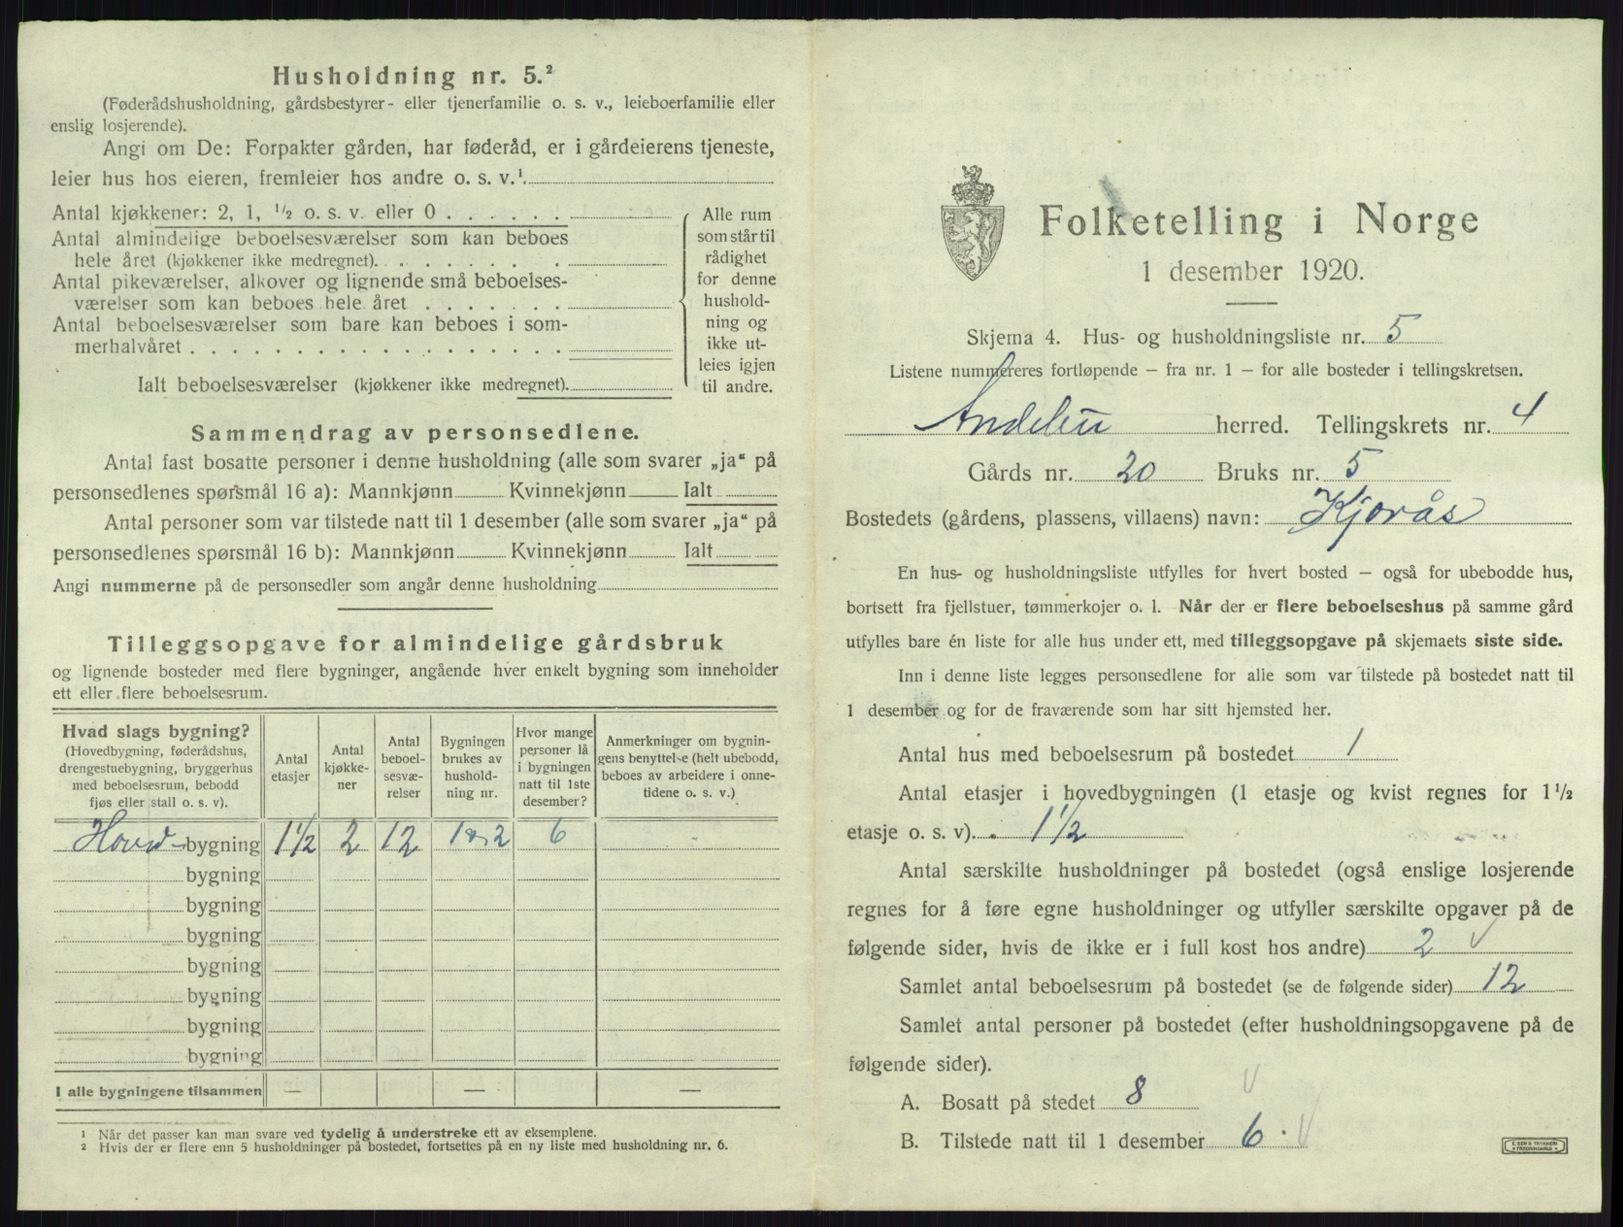 Husholdning nr. 5.²
(Føderådshusholdning, gårdsbestyrer- eller tjenerfamilie o. s. v., leieboerfamilie eller
enslig losjerende).
Angi om De: Forpakter gården, har føderåd, er i gårdeierens tjeneste,
leier hus hos eieren, fremleier hos andre o. s. v.¹
Antal kjøkkener: 2, 1, ½ o. s. v. eller 0
Antal almindelige beboelsesværelser som kan beboes
hele året (kjøkkener ikke medregnet).
Antal pikeværelser, alkover og lignende små beboelses-
værelser som kan beboes hele året
Antal beboelsesværelser som bare kan beboes i som-
merhalvåret
Ialt beboelsesværelser (kjøkkener ikke medregnet).
Alle rum
som står til
rådighet
for denne
hushold-
ning og
ikke ut-
leies igjen
til andre.
Sammendrag av personsedlene.
Antal fast bosatte personer i denne husholdning (alle som svarer „ja“ på
personsedlenes spørsmål 16 a): Mannkjønn Kvinnekjønn Ialt
Antal personer som var tilstede natt til 1 desember (alle som svarer „ja“ på
personsedlenes spørsmål 16 b): Mannkjønn Kvinnekjønn Ialt
Angi nummerne på de personsedler som angår denne husholdning
Tilleggsopgave for almindelige gårdsbruk
og lignende bosteder med flere bygninger, angående hver enkelt bygning som inneholder
ett eller flere beboelsesrum.
Hvad slags bygning?
(Hovedbygning, føderådshus,
drengestuebygning, bryggerhus
med beboelsesrum, bebodd
fjøs eller stall o. s. v).
Antal
etasjer
Antal
kjøkke-
ner
Antal
beboel-
sesvæ-
relser
Bygningen
brukes av
hushold-
ning nr.
Hvor mange
personer lå
i bygningen
natt til 1ste
desember?
Anmerkninger om bygnin-
gens benyttelse (helt ubebodd,
beboes av arbeidere i onne-
tidene o. s. v.)
Hovd-bygning 1½ 2 12 1 & 2 6
bygning
bygning
bygning
bygning
bygning
bygning
bygning
I alle bygningene tilsammen — — —
¹ Når det passer kan man svare ved tydelig å understreke ett av eksemplene.
² Hvis der er flere enn 5 husholdninger på bostedet, fortsettes på en ny liste med husholdning nr. 6.
Folketelling i Norge
1 desember 1920.
Skjema 4. Hus- og husholdningsliste nr. 5
Listene nummereres fortløpende — fra nr. 1 — for alle bosteder i tellingskretsen.
Andebu herred. Tellingskrets nr. 4
Gårds nr. 20 Bruks nr. 5
Bostedets (gårdens, plassens, villaens) navn: Kjorås
En hus- og husholdningsliste utfylles for hvert bosted — også for ubebodde hus,
bortsett fra fjellstuer, tømmerkojer o. l. Når der er flere beboelseshus på samme gård
utfylles bare én liste for alle hus under ett, med tilleggsopgave på skjemaets siste side.
Inn i denne liste legges personsedlene for alle som var tilstede på bostedet natt til
1 desember og for de fraværende som har sitt hjemsted her.
Antal hus med beboelsesrum på bostedet 1
Antal etasjer i hovedbygningen (1 etasje og kvist regnes for 1½
etasje o. s. v). 1½
Antal særskilte husholdninger på bostedet (også enslige losjerende
regnes for å føre egne husholdninger og utfyller særskilte opgaver på de
følgende sider, hvis de ikke er i full kost hos andre) 2
Samlet antal beboelsesrum på bostedet (se de følgende sider) 12
Samlet antal personer på bostedet (efter husholdningsopgavene på de
følgende sider).
A. Bosatt på stedet 8
B. Tilstede natt til 1 desember 6